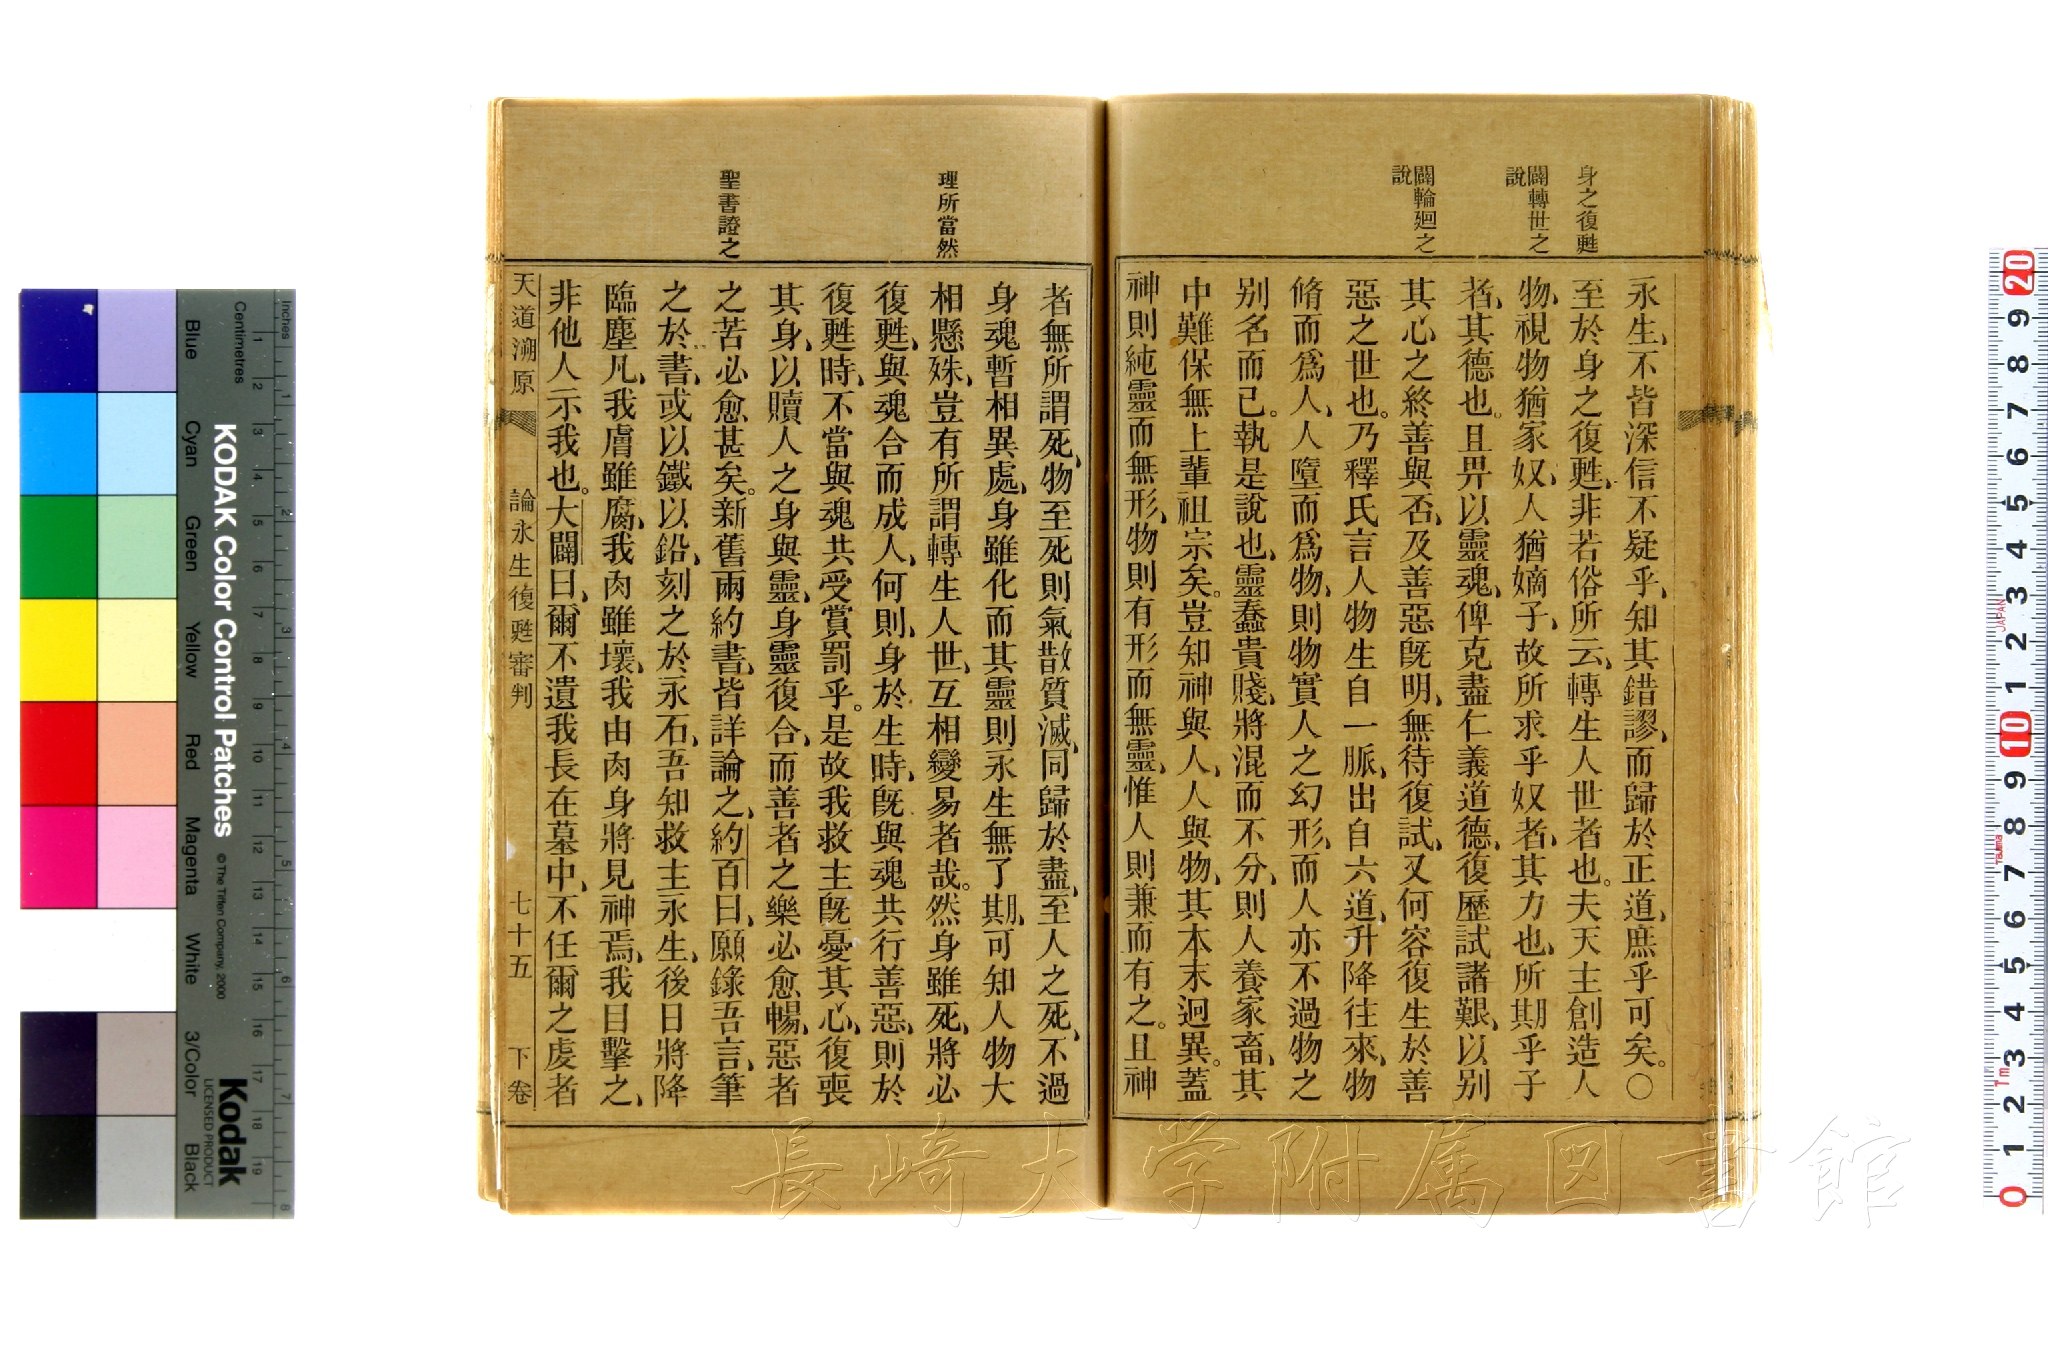 身之復甦
闢轉世之
說
闢輪廻之
說
永生、不皆深信不疑乎、知其錯謬、而歸於正道、庶乎可矣。〇
至於身之復甦、非若俗所云、轉生人世者也。夫天主創造人
物、視物猶家奴、人猶嫡子、故所求乎奴者、其力也、所期乎子
者、其德也。且畀以靈魂、俾克盡仁義道德、復歷試諸艱、以別
其心之終善與否、及善惡旣明、無待復試、又何容復生於善
惡之世也。乃釋氏言人物生自一脈、出自六道、升降往來、物
脩而爲人、人墮而爲物、則物實人之幻形、而人亦不過物之
別名而已。執是說也、靈蠢貴賤、將混而不分、則人養家畜、其
中難保無上輩祖宗矣。豈知神與人、人與物、其本末迥異。蓋
神則純靈而無形、物則有形而無靈、惟人則兼而有之。且神
理所當然
聖書證之
者無所謂死、物至死則氣散質滅、同歸於盡、至人之死、不過
身魂暫相異處、身雖化而其靈則永生無了期、可知人物大
相懸殊、豈有所謂轉生人世、互相變易者哉。然身雖死、將必
復甦、與魂合而成人、何則、身於生時、旣與魂共行善惡、則於
復甦時、不當與魂共受賞罰乎。是故我救主旣憂其心、復喪
其身、以贖人之身與靈、身靈復合、而善者之樂必愈暢、惡者
之苦必愈甚矣。新舊兩約書、皆詳論之、約百曰、願錄吾言、筆
之於書、或以鐵以鉛、刻之於永石、吾知救主永生、後日將降
臨塵凡、我膚雖腐、我肉雖壞、我由肉身將見神焉、我目擊之、
非他人示我也。大闢曰、爾不遺我長在墓中、不任爾之虔者
天道溯原 論永生復甦審判 七十五 下卷
長崎大学附属図書館
KODAK Color Control Patches
© The Tiffen Company, 2000
Kodak
LICENSED PRODUCT
Inches
Centimetres
Blue
Cyan
Green
Yellow
Red
Magenta
White
3/Color
Black
1 2 3 4 5 6 7 8 9 10 11 12 13 14 15 16 17 18 19
1 2 3 4 5 6 7 8
20 9 8 7 6 5 4 3 2 1 10 9 8 7 6 5 4 3 2 1 0
JAPAN
Tajima
Tm